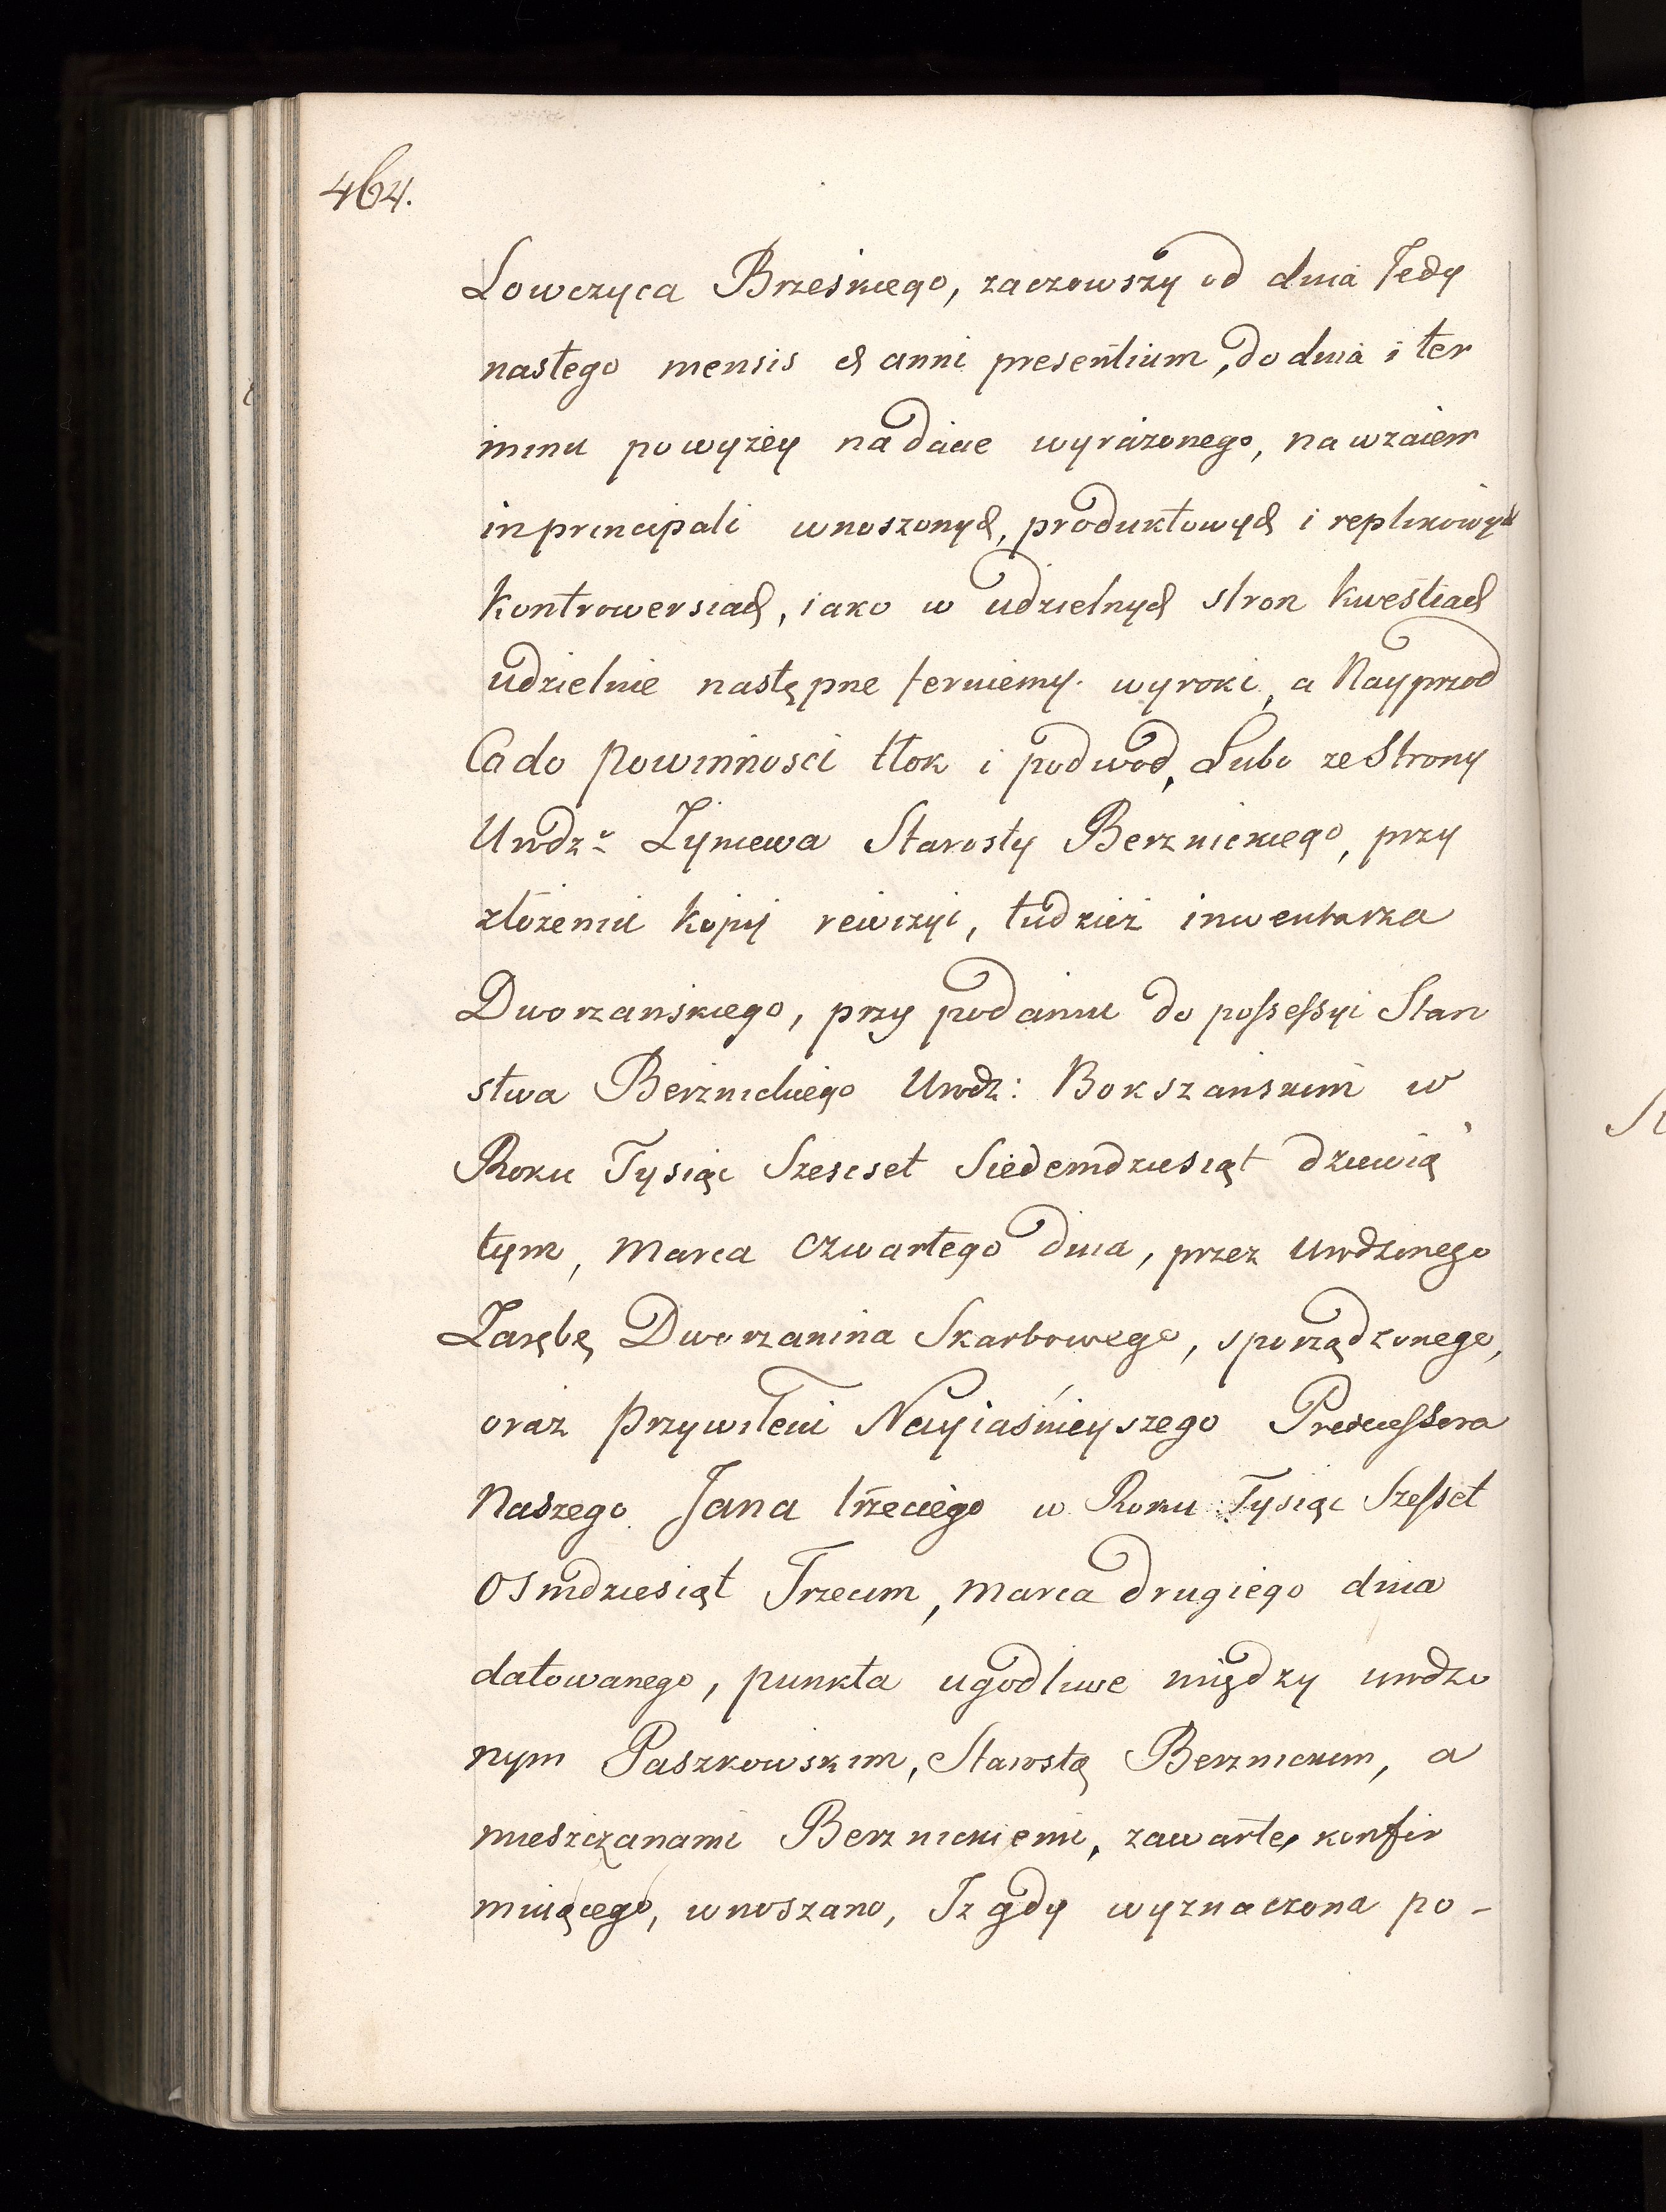 464.
Łowczyca Brzeskiego, zacząwszy od dnia Jedy
nastego mensis et anni presentium, do dnia i ter
minu powyżey na dacie wyrażonego, na wzaiem
in principali wnoszonych, produktowych i replikowych
kontrowersiach, iako w udzielnych stron kwestiach
udzielnie następne feruiemy wyroki, a Nayprzod
Co do powinności tłok i podwod, Lubo ze Strony
Urodz: Zyniewa Starosty Berznickiego, przy
złożeniu kopij rewizyi, tudzież inwentarza
Dworzańskiego, przy podaniu do possessyi Staro
stwa Berznickiego Urodz: Bokszańskim w
Roku Tysiąc Szescset Siedemdziesiąt dziewią
tym, Marca czwartego dnia, przez Urodzonego
Zarębę Dworzanina Skarbowego, sporządzonego,
oraz przywileiu Nayiaśnieyszego Predecessora
Naszego Jana trzeciego w Roku Tysiąc Szesset
Osmdziesiąt Trzecim, Marca drugiego dnia
datowanego, punkta ugodliwe między urodzo
nym Paszkowskim, Starostą Berznickim, a
mieszczanami Berznickiemi, zawarte, konfir
muiącego, wnoszano, Iz gdy wyznaczona po-